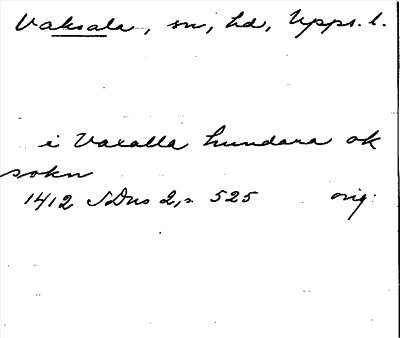 Vaksala, sn, hd, Upps. l.
i Vaxalla hundara ok
sokn
1412 SDns 2, s. 525 orig.